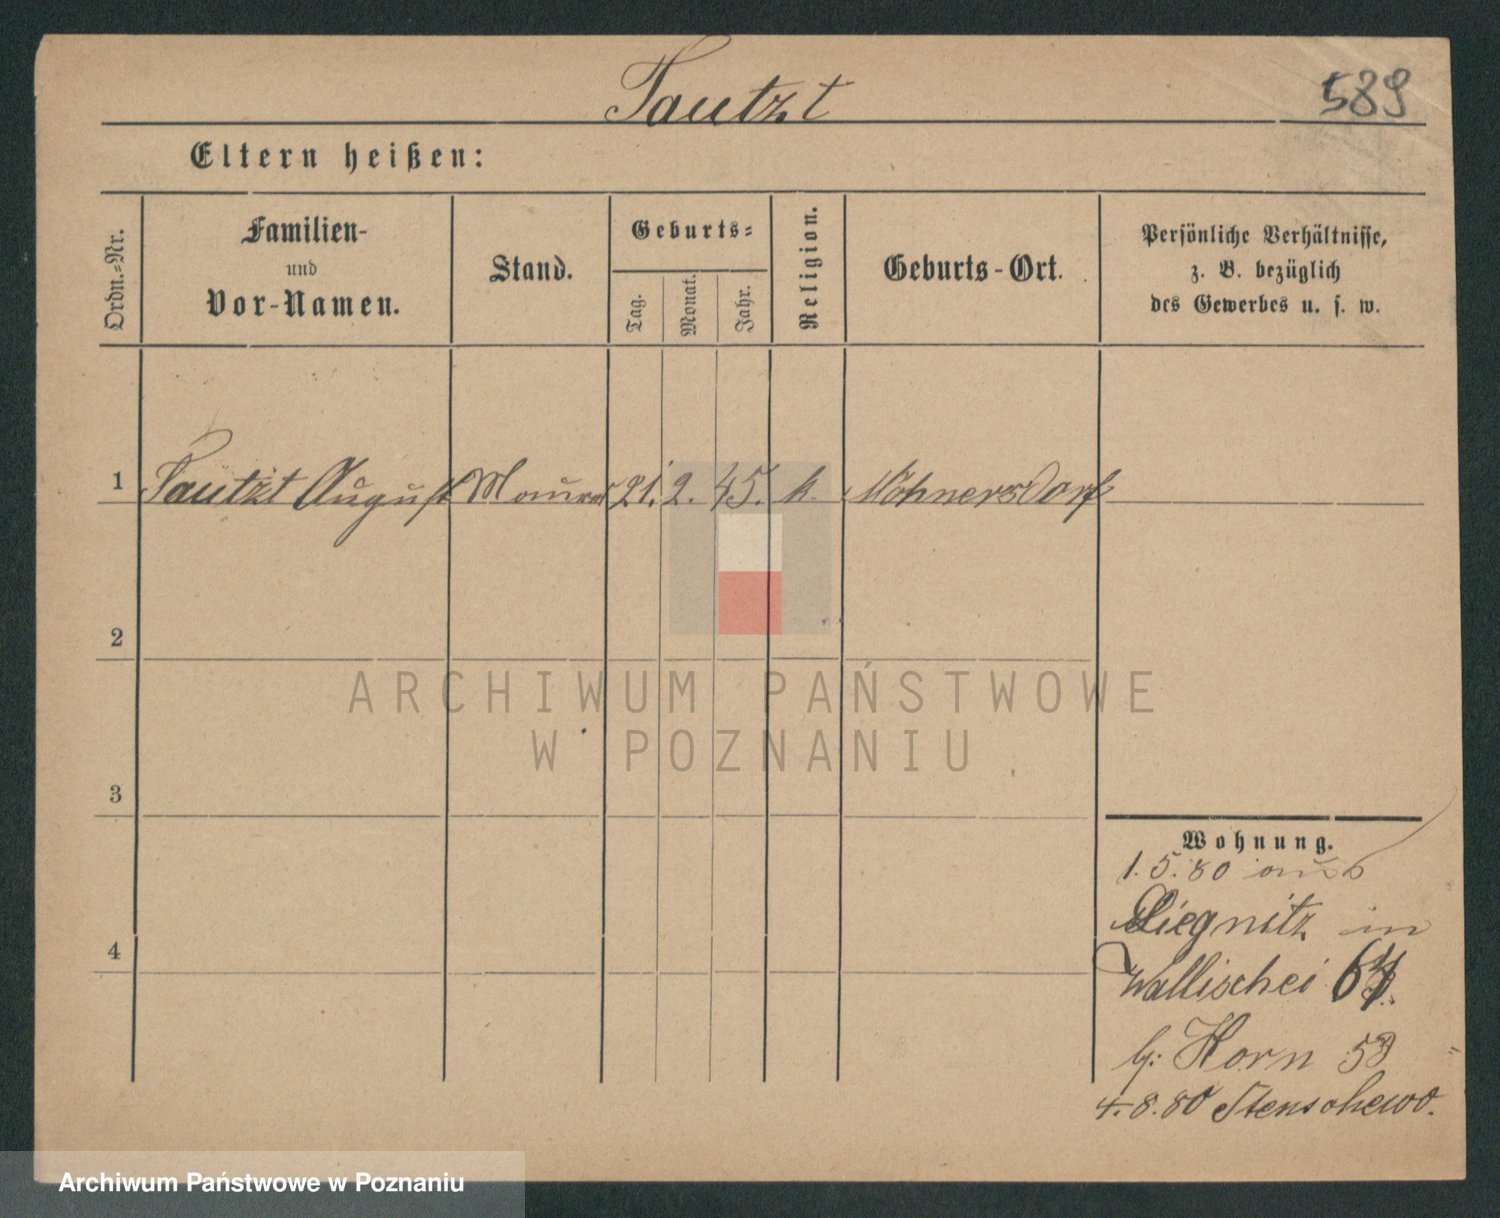 Tautzt
589
Eltern heißen:
Ordn.-Nr.
Familien-
und
Vor-Namen.
Stand.
Geburts-
Tag.
Monat.
Jahr.
Religion.
Geburts-Ort.
Persönliche Verhältnisse,
z. B. bezüglich
des Gewerbes u. s. w.
1 Tautzt August Maurer 21. 2. 45. k. Möhnersdorf
2
3
4
ARCHIWUM PAŃSTWOWE
W POZNANIU
Wohnung.
1. 5. 80 aus
Liegnitz in
Wallischei
b: Horn 53
4. 8. 80 Stenschewo.
Archiwum Państwowe w Poznaniu